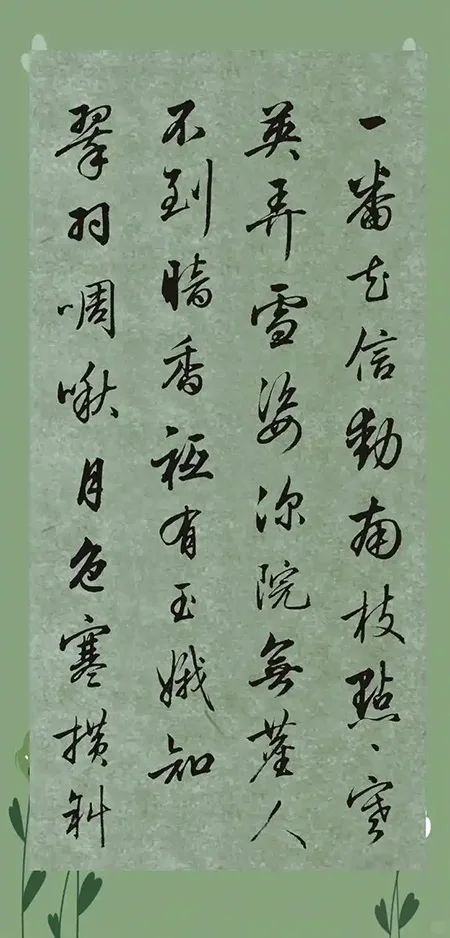 一番花信動南枝點點寒
英弄雪姿深院無塵人
不到暗香祗有玉娥知
翠羽啁啾月色寒橫斜